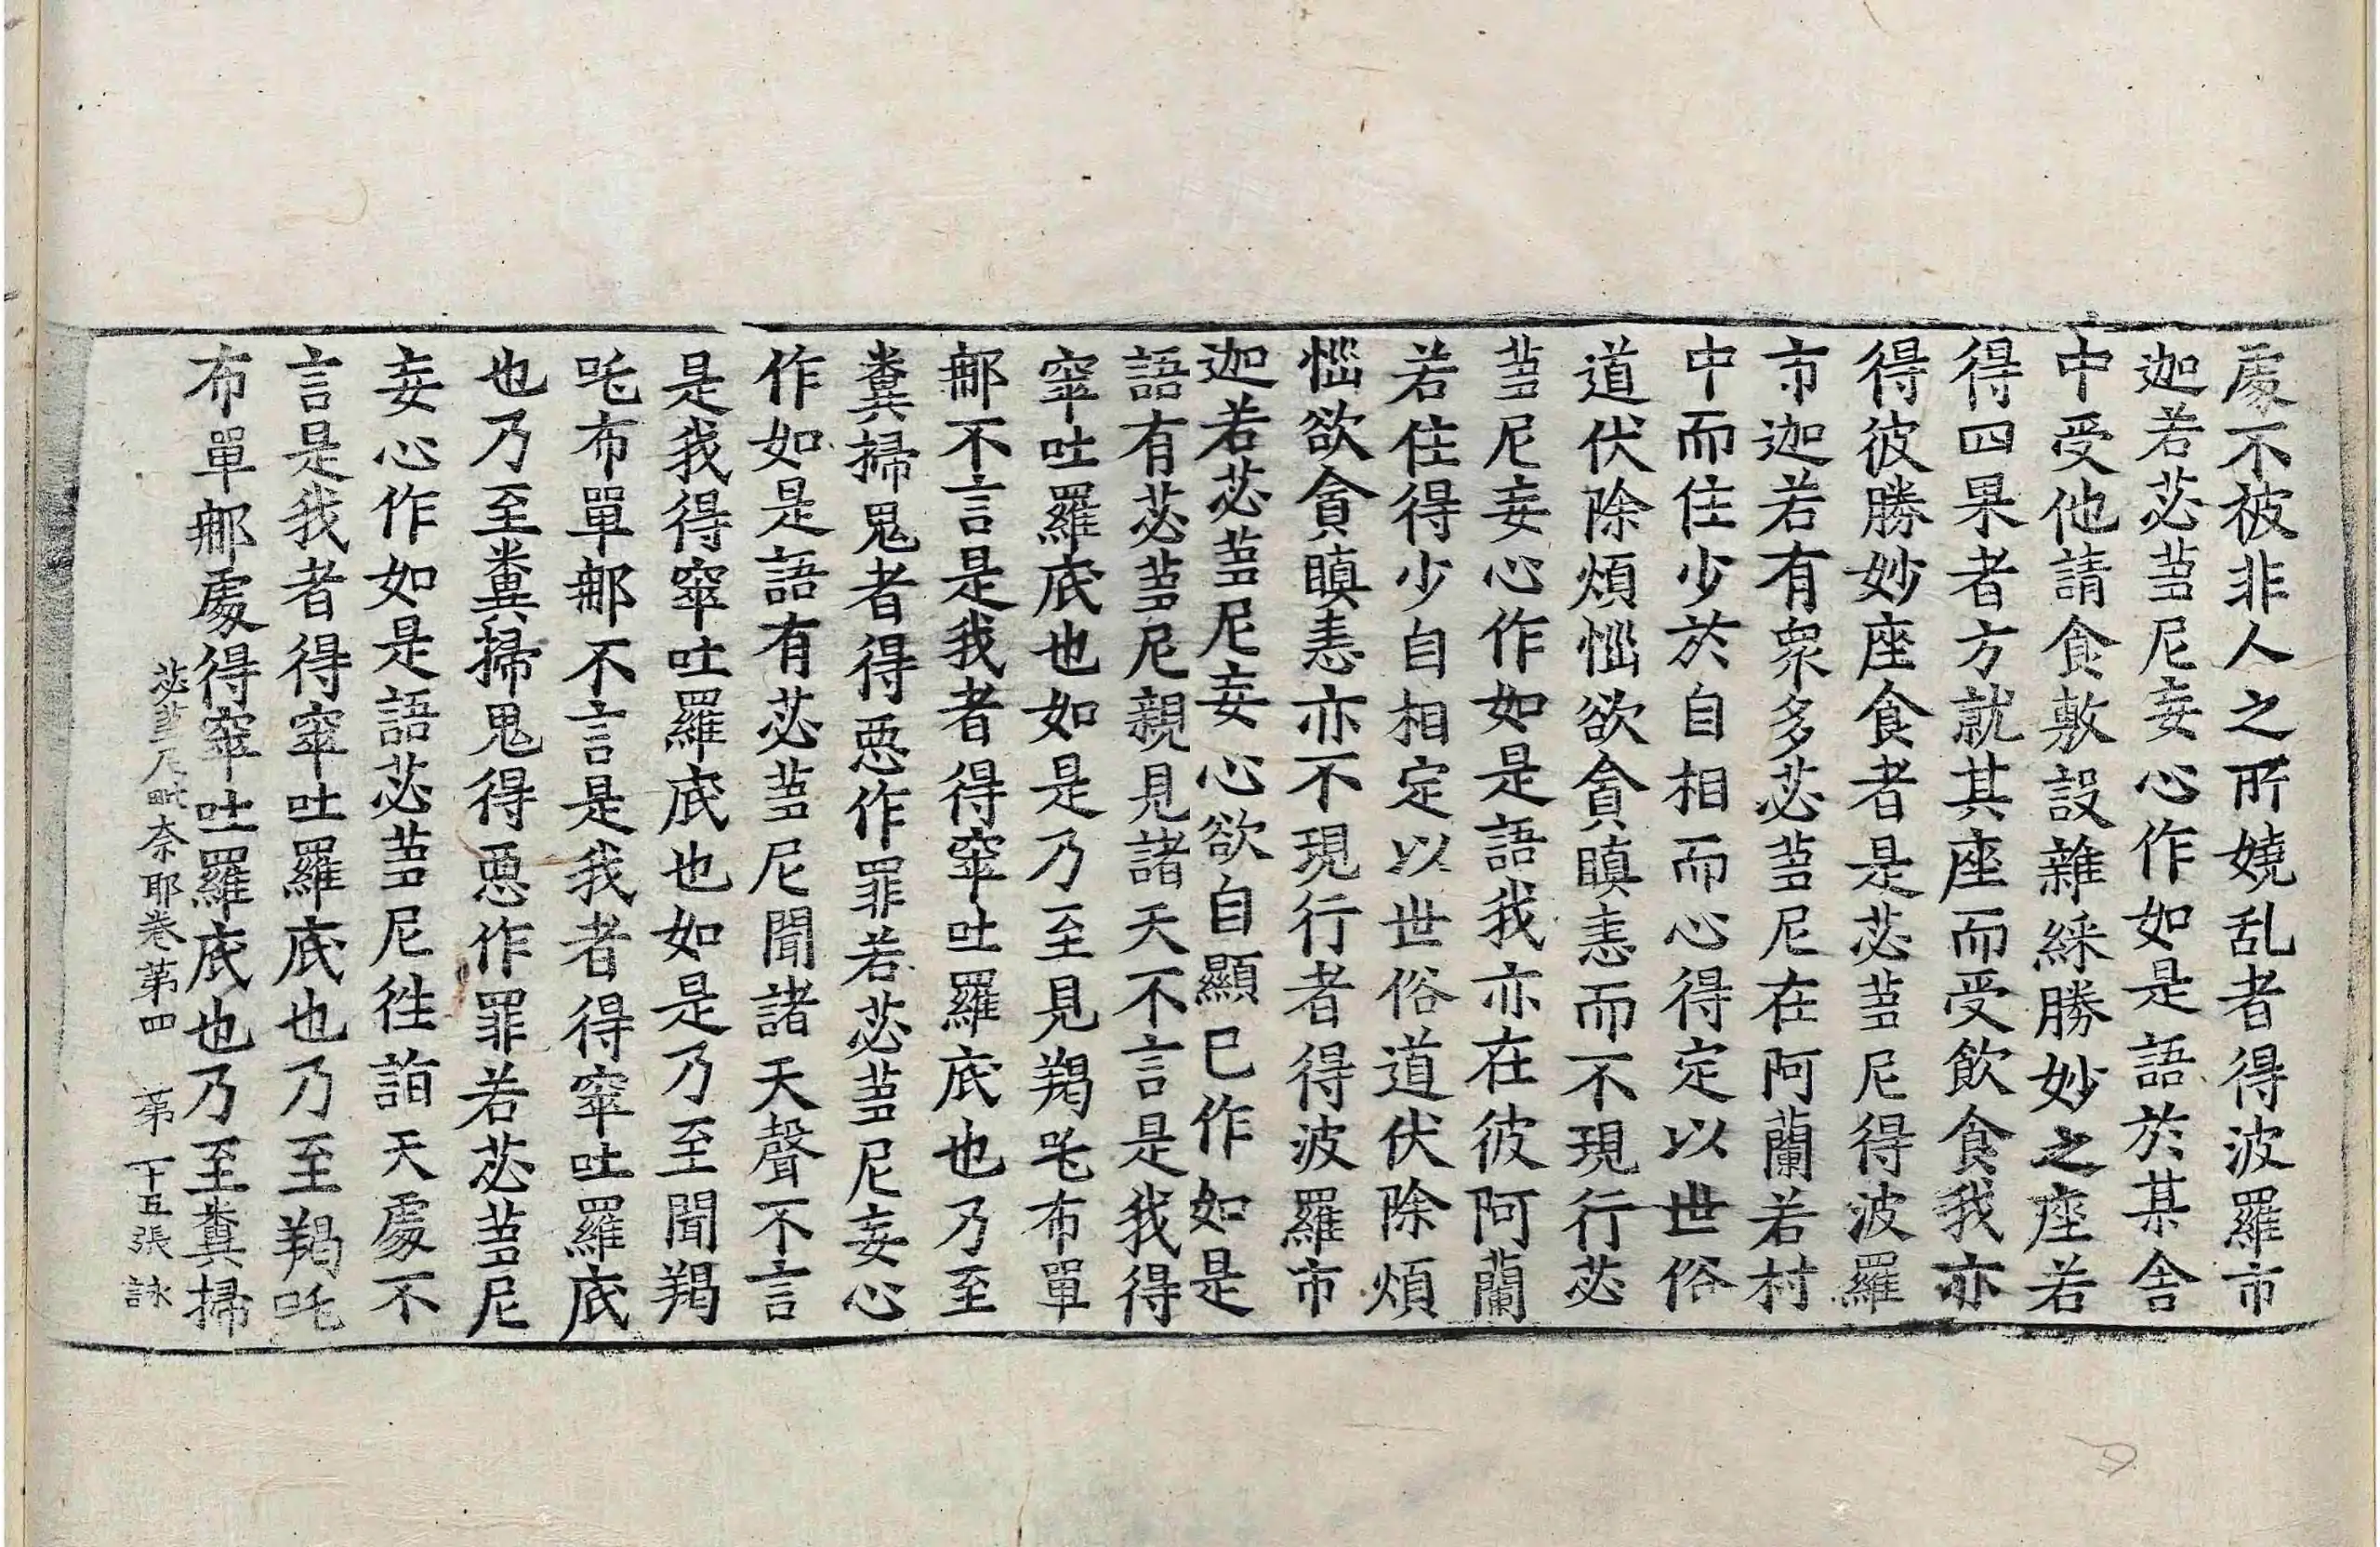 處不被非人之所嬈乱者得波羅市
迦若苾蒭尼妄心作如是語於某舍
中受他請食敷設雜綵勝妙之座若
得四果者方就其座而受飲食我亦
得彼勝妙座食者是苾蒭尼得波羅
市迦若有衆多苾蒭尼在阿蘭若村
中而住少於自相而心得定以世俗
道伏除煩惱欲貪瞋恚而不現行苾
蒭尼妄心作如是語我亦在彼阿蘭
若住得少自相定以世俗道伏除煩
惱欲貪瞋恚亦不現行者得波羅市
迦若苾蒭尼妄心欲自顯已作如是
語有苾蒭尼親見諸天不言是我得
窣吐羅底也如是乃至見羯吒布單
那不言是我者得窣吐羅底也乃至
糞掃鬼者得惡作罪若苾蒭尼妄心
作如是語有苾蒭尼聞諸天聲不言
是我得窣吐羅底也如是乃至聞羯
吒布單那不言是我者得窣吐羅底
也乃至糞掃鬼得惡作罪若苾蒭尼
妄心作如是語苾蒭尼往詣天處不
言是我者得窣吐羅底也乃至羯吒
布單那處得窣吐羅底也乃至糞掃
苾蒭尼毗奈耶卷第四 第十五張 詠